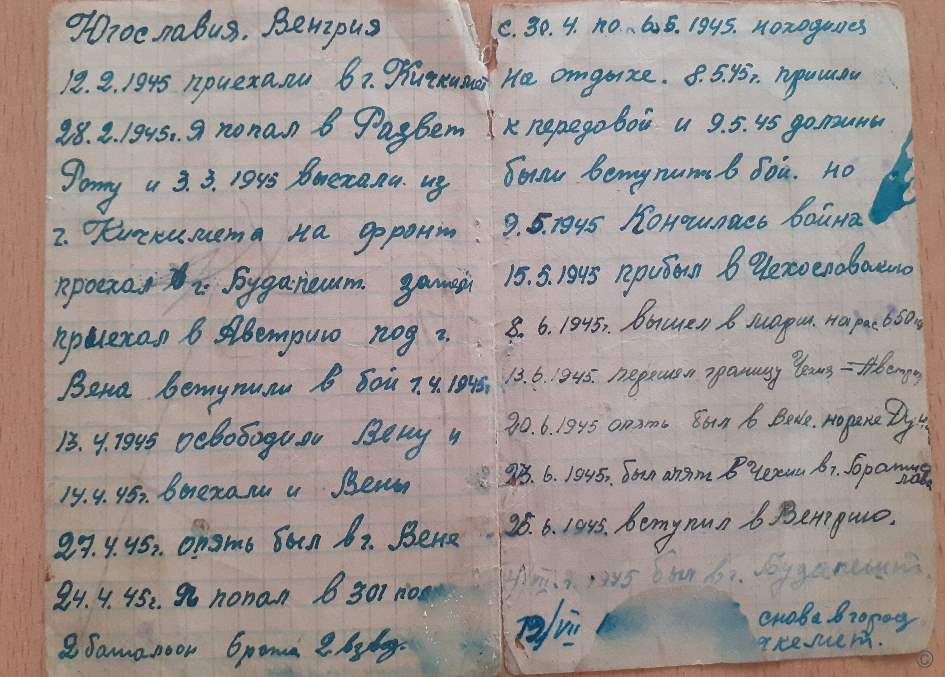 Югославия. Венгрия
12.2.1945 приехали в г. Кичкимет
28.2.1945г. я попал в Развет
Роту и 3.3.1945 выехали из
г. Кичкимета на фронт
проехал в г. Будапешт. затем
приехал в Австрию под г.
Вена вступили в бой 7.4.1945г
13.4.1945 освободили Вену и
14.4.45г. выехали и Вены
27.4.45г. опять был в г. Вене
24.4.45г. я попал в 301 пол
2 баталъон 6 рота 2 взвод.
с. 30.4. по 1945. находился
на отдыхе. 8.5.45г. пришли
к передовой и 9.5.45 должны
были вступить в бой. но
9.5.1945 Кончилась война
15.5.1945 прибыл в Чехословакию
8. 6. 1945г. вышел в марш. на рас. 650
13.6.1945. перешел границу Чехия = Австрия
20.6.1945 опять был в Вене. на реке Ду
23.6.1945. был опят в Чехии в г. Братис
лава
25.6.1945. вступил в Венгрию.
1945 был в г. Будапешт.
12/VII снова в город
чкемет.
©